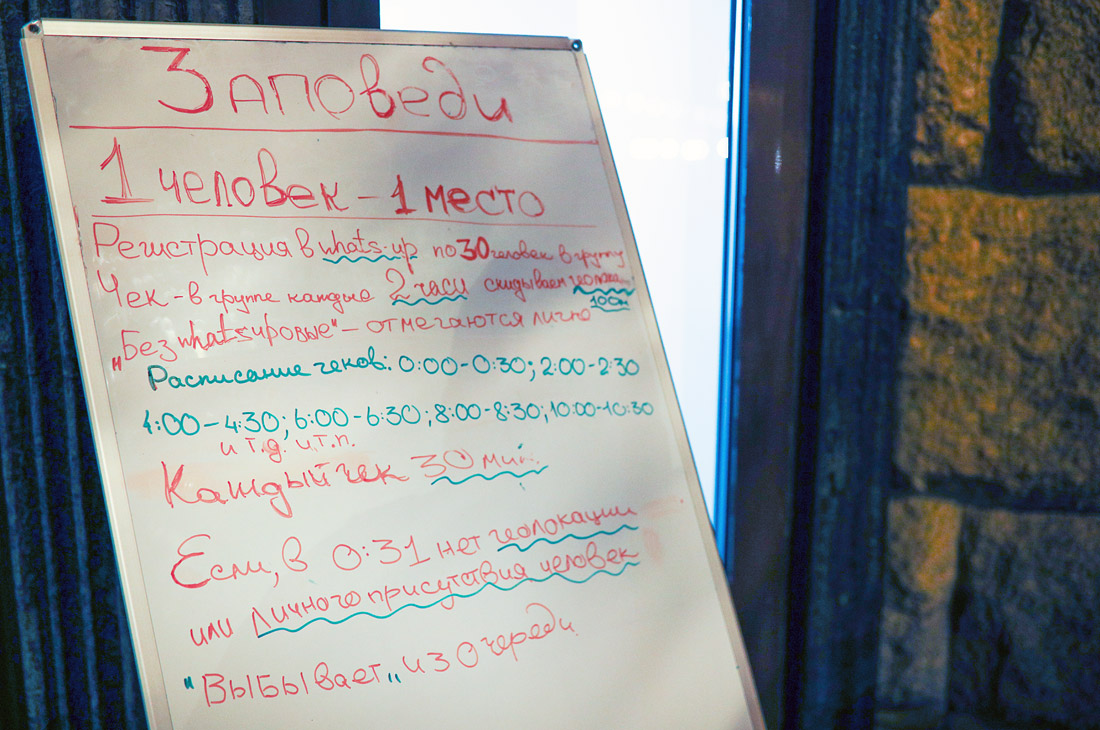 Заповеди
1 человек - 1 место
Регистрация в whats-up по 30 человек в группу
Чек - в группе каждые 2 часа скидываем
100м
"Без whatsupовые" - отмечаются лично
Расписание чеков: 0:00-0:30; 2:00-2:30
4:00-4:30; 6:00-6:30; 8:00-8:30; 10:00-10:30
и т.д. и т.п.
Каждый чек 30 мин.
Если, в 0:31 нет геолокации
или личного присутствия человек
"Выбывает" из очереди